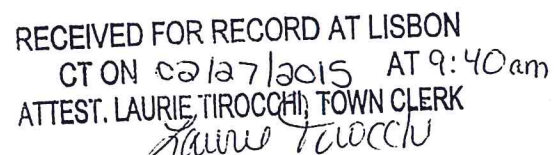 RECEIVED FOR RECORD AT LISBON
CT ON 02/27/2015 AT 9:40am
ATTEST. LAURIE TIROCCHI, TOWN CLERK
Laurie Tirocchi